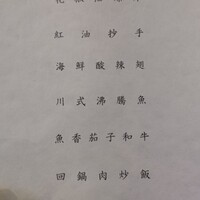 紅油抄手
海鮮酸辣翅
川式沸騰魚
魚香茄子和牛
回鍋肉炒飯